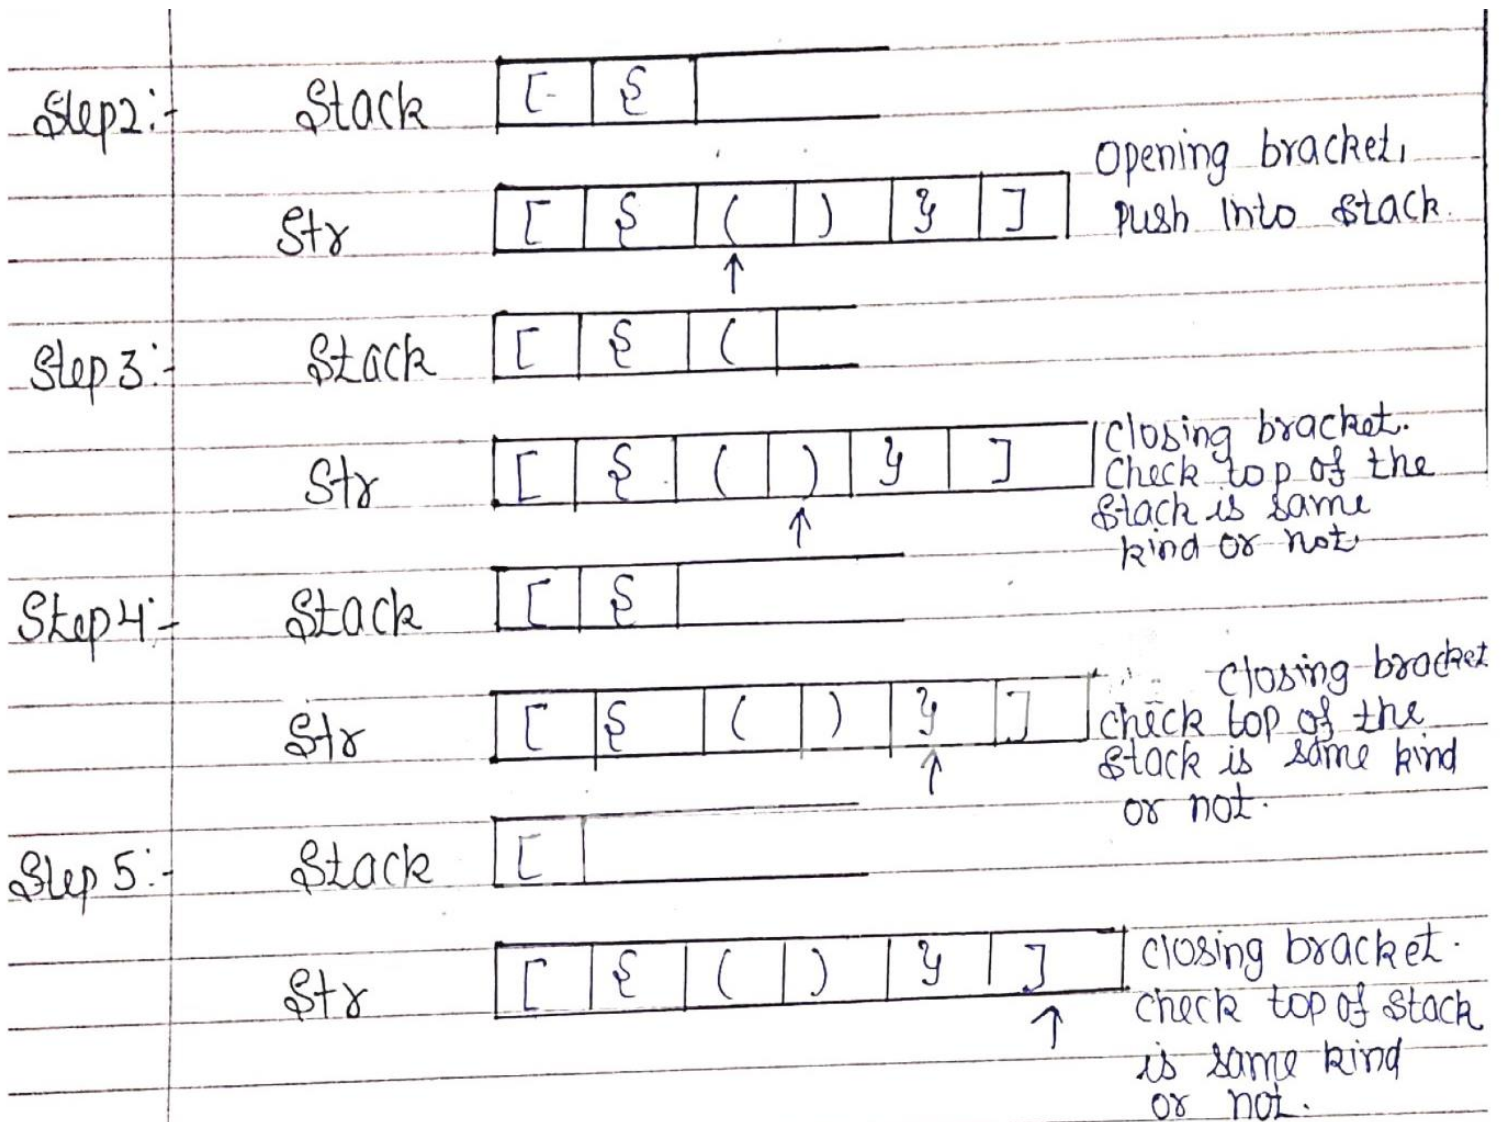 Step2:- Stack [ {
Opening bracket,
Str [ { ( ) } ] push into stack.
↑
Step 3:- Stack [ { (
Closing bracket.
Str [ { ( ) } ] Check top of the
↑ Stack is same
kind or not.
Step4:- Stack [ {
Closing bracket
Str [ { ( ) } ] check top of the
↑ Stack is same kind
or not.
Step 5:- Stack [
Str [ { ( ) } ] closing bracket.
↑ check top of Stack
is same kind
or not.